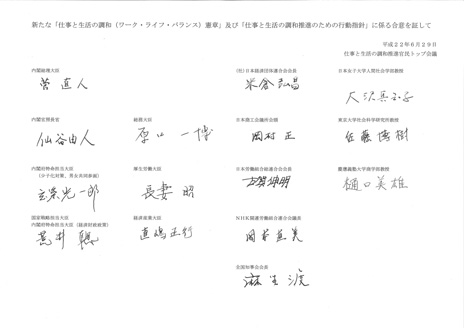 新たな「仕事と生活の調和（ワーク・ライフ・バランス）憲章」及び「仕事と生活の調和推進のための行動指針」に係る合意を証して
平成２２年６月２９日
仕事と生活の調和推進官民トップ会議
内閣総理大臣
菅 直人
(社)日本経済団体連合会会長
米倉弘昌
日本女子大学人間社会学部教授
大沢真知子
内閣官房長官
仙谷由人
総務大臣
原口 一博
日本商工会議所会頭
岡村 正
東京大学社会科学研究所教授
佐藤博樹
内閣府特命担当大臣
（少子化対策、男女共同参画）
玄葉光一郎
厚生労働大臣
長妻 昭
日本労働組合総連合会会長
古賀伸明
慶應義塾大学商学部教授
樋口美雄
国家戦略担当大臣
内閣府特命担当大臣（経済財政政策）
荒井 聰
経済産業大臣
直嶋正行
NHK関連労働組合連合会議長
岡本直美
全国知事会会長
麻生 渡